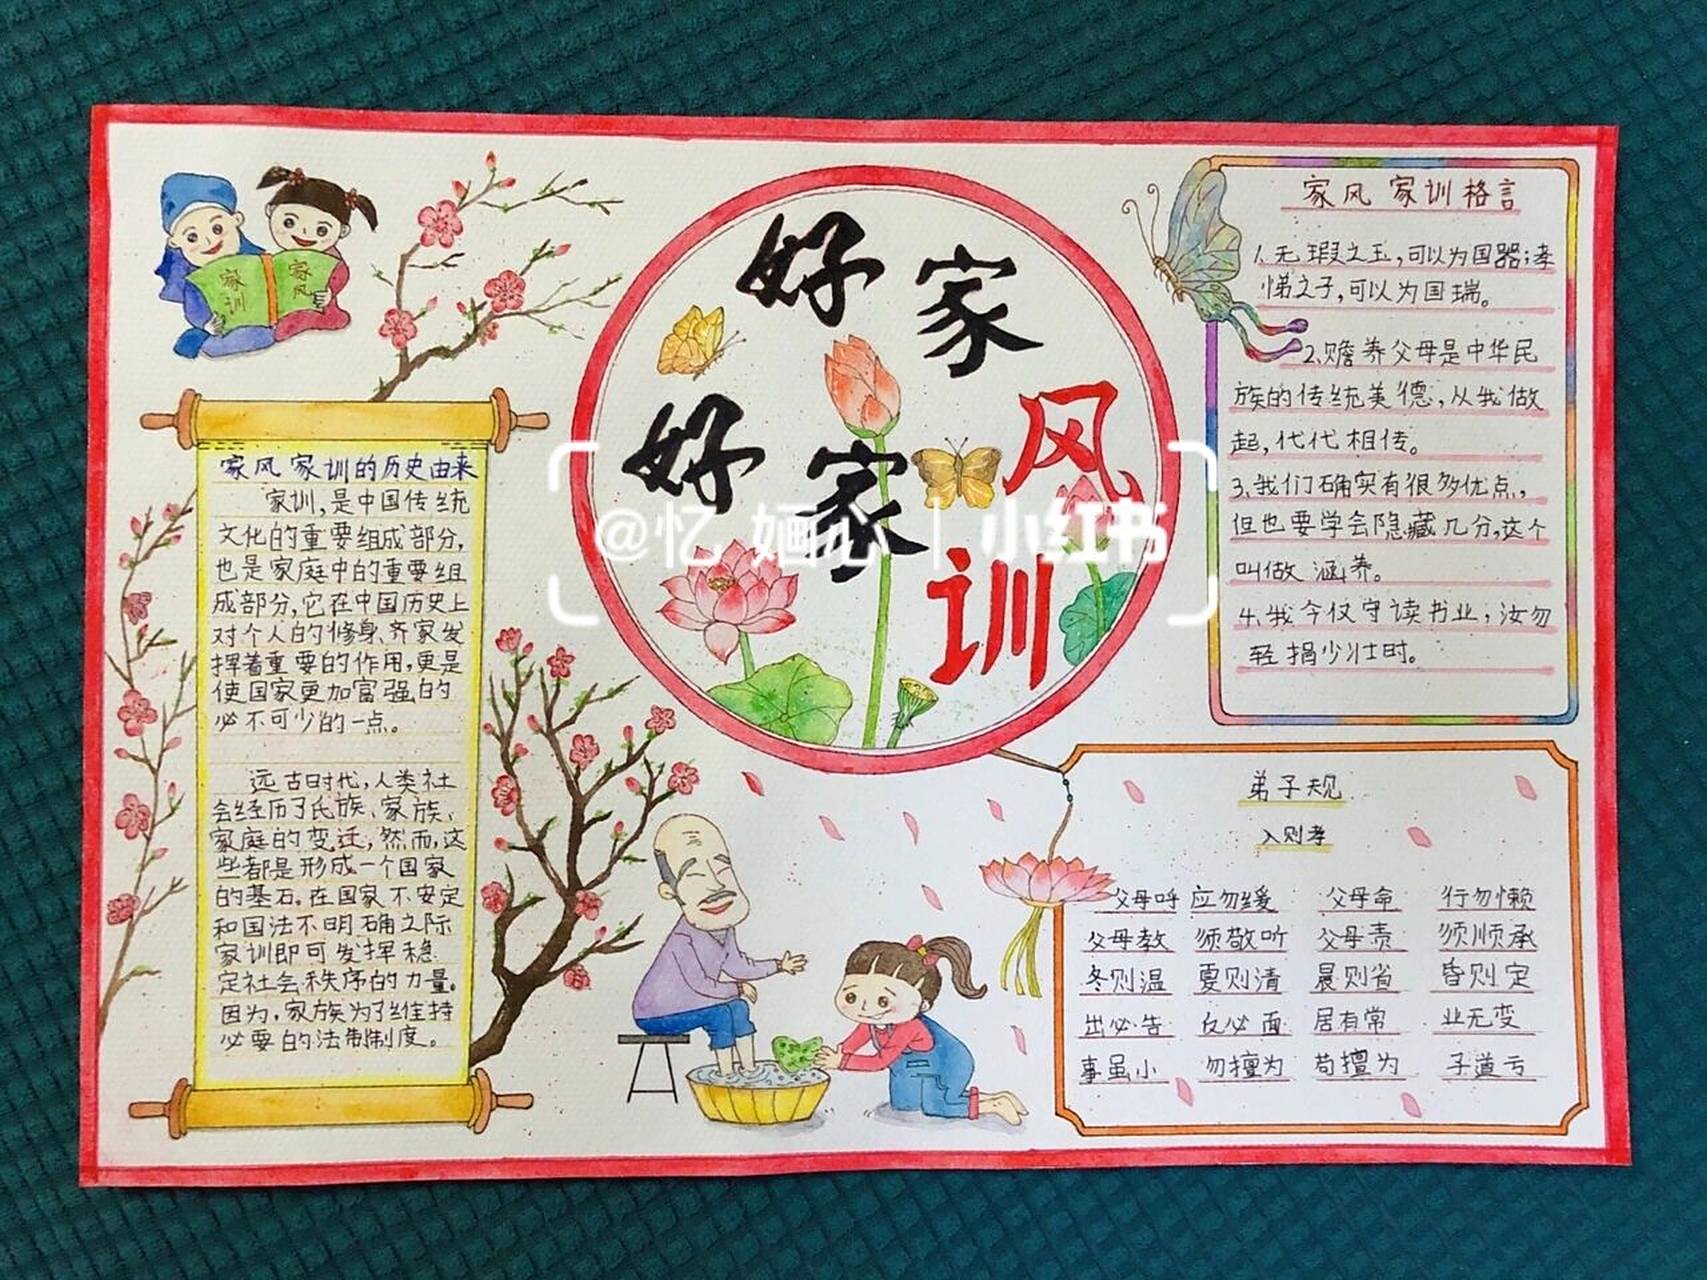 家训
家风
好家风
好家训
@忆 婳心 | 小红书
家风家训的历史由来
家训,是中国传统
文化的重要组成部分,
也是家庭中的重要组
成部分,它在中国历史上
对个人的修身、齐家发
挥着重要的作用,更是
使国家更加富强的
必不可少的一点。
远古时代,人类社
会经历了氏族、家族、
家庭的变迁,然而,这
些都是形成一个国家
的基石。在国家不安定
和国法不明确之际
家训即可发挥稳
定社会秩序的力量。
因为,家族为了维持
必要的法制制度。
家风家训格言
1.无瑕之玉,可以为国器;孝
悌之子,可以为国瑞。
2、赡养父母是中华民
族的传统美德,从我做
起,代代相传。
3、我们确实有很多优点,
但也要学会隐藏几分,这个
叫做涵养。
4、我今仅守读书业,汝勿
轻捐少壮时。
弟子规
入则孝
父母呼 应勿缓 父母命 行勿懒
父母教 须敬听 父母责 须顺承
冬则温 夏则清 晨则省 昏则定
出必告 反必面 居有常 业无变
事虽小 勿擅为 苟擅为 子道亏